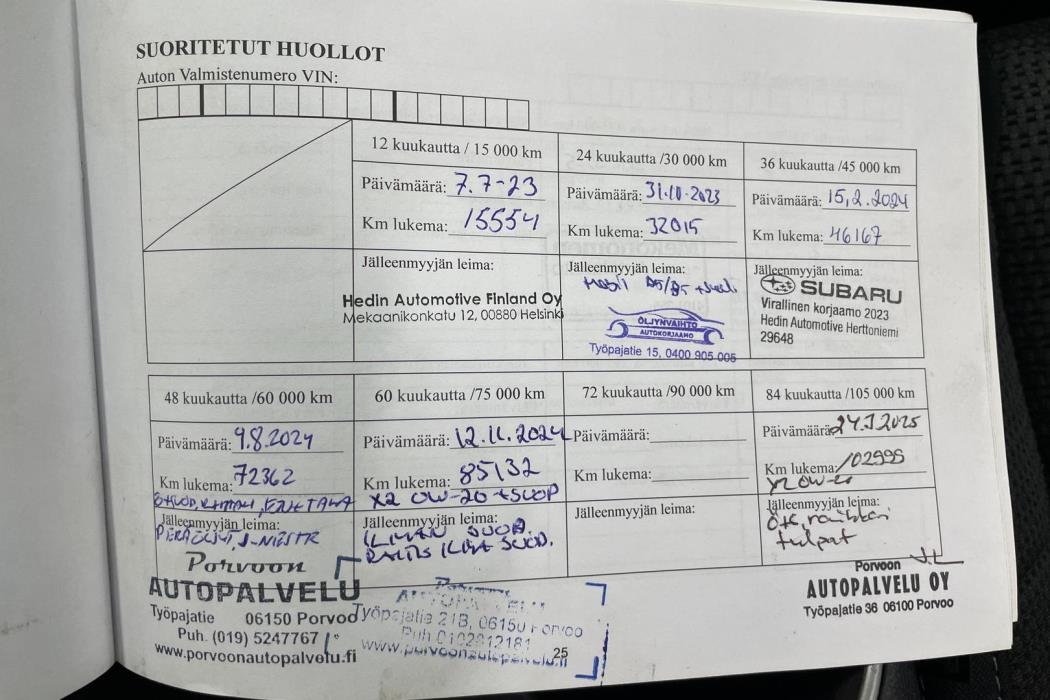 SUORITETUT HUOLLOT
Auton Valmistenumero VIN:
12 kuukautta / 15 000 km
Päivämäärä: 7.7-23
Km lukema: 15554
Jälleenmyyjän leima:
Hedin Automotive Finland Oy
Mekaanikonkatu 12, 00880 Helsinki
24 kuukautta /30 000 km
Päivämäärä: 31.10.2023
Km lukema: 32015
Jälleenmyyjän leima:
ÖLJYNVAIHTO
AUTOKORJAAMO
Työpajatie 15, 0400 905 005
36 kuukautta /45 000 km
Päivämäärä: 15,2.2024
Km lukema: 46167
Jälleenmyyjän leima:
SUBARU
Virallinen korjaamo 2023
Hedin Automotive Herttoniemi
29648
48 kuukautta /60 000 km
Päivämäärä: 9.8.2024
Km lukema: 72362
Jälleenmyyjän leima:
Porvoon
AUTOPALVELU
Työpajatie 06150 Porvoo
Puh. (019) 5247767
www.porvoonautopalvelu.fi
60 kuukautta /75 000 km
Päivämäärä: 12.11.2024
Km lukema: 85132
X2 0W-20 +SUOD
Jälleenmyyjän leima:
ILMAN SUOD.
RAITIS ILMA SUOD.
Työpajatie 21B, 06150 Porvoo
Puh 0102812181
www.porvoonautopalvelu.fi
72 kuukautta /90 000 km
Päivämäärä:
Km lukema:
Jälleenmyyjän leima:
84 kuukautta /105 000 km
Päivämäärä: 24.7.2025
Km lukema: 102995
Jälleenmyyjän leima:
tulpat
Porvoon
AUTOPALVELU OY
Työpajatie 36 06100 Porvoo
25